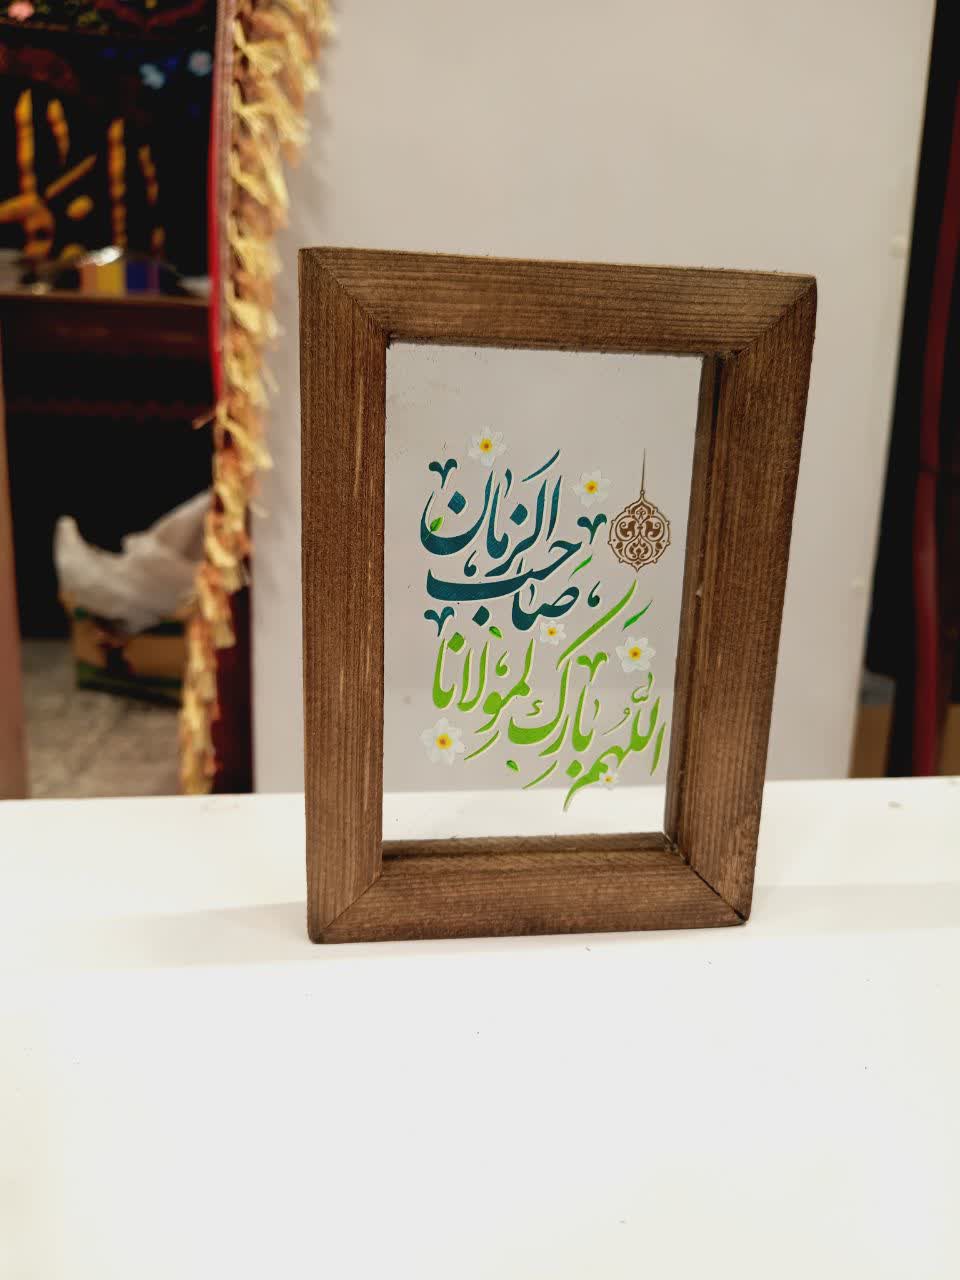 اللهم بارک لمولانا
صاحب الزمان